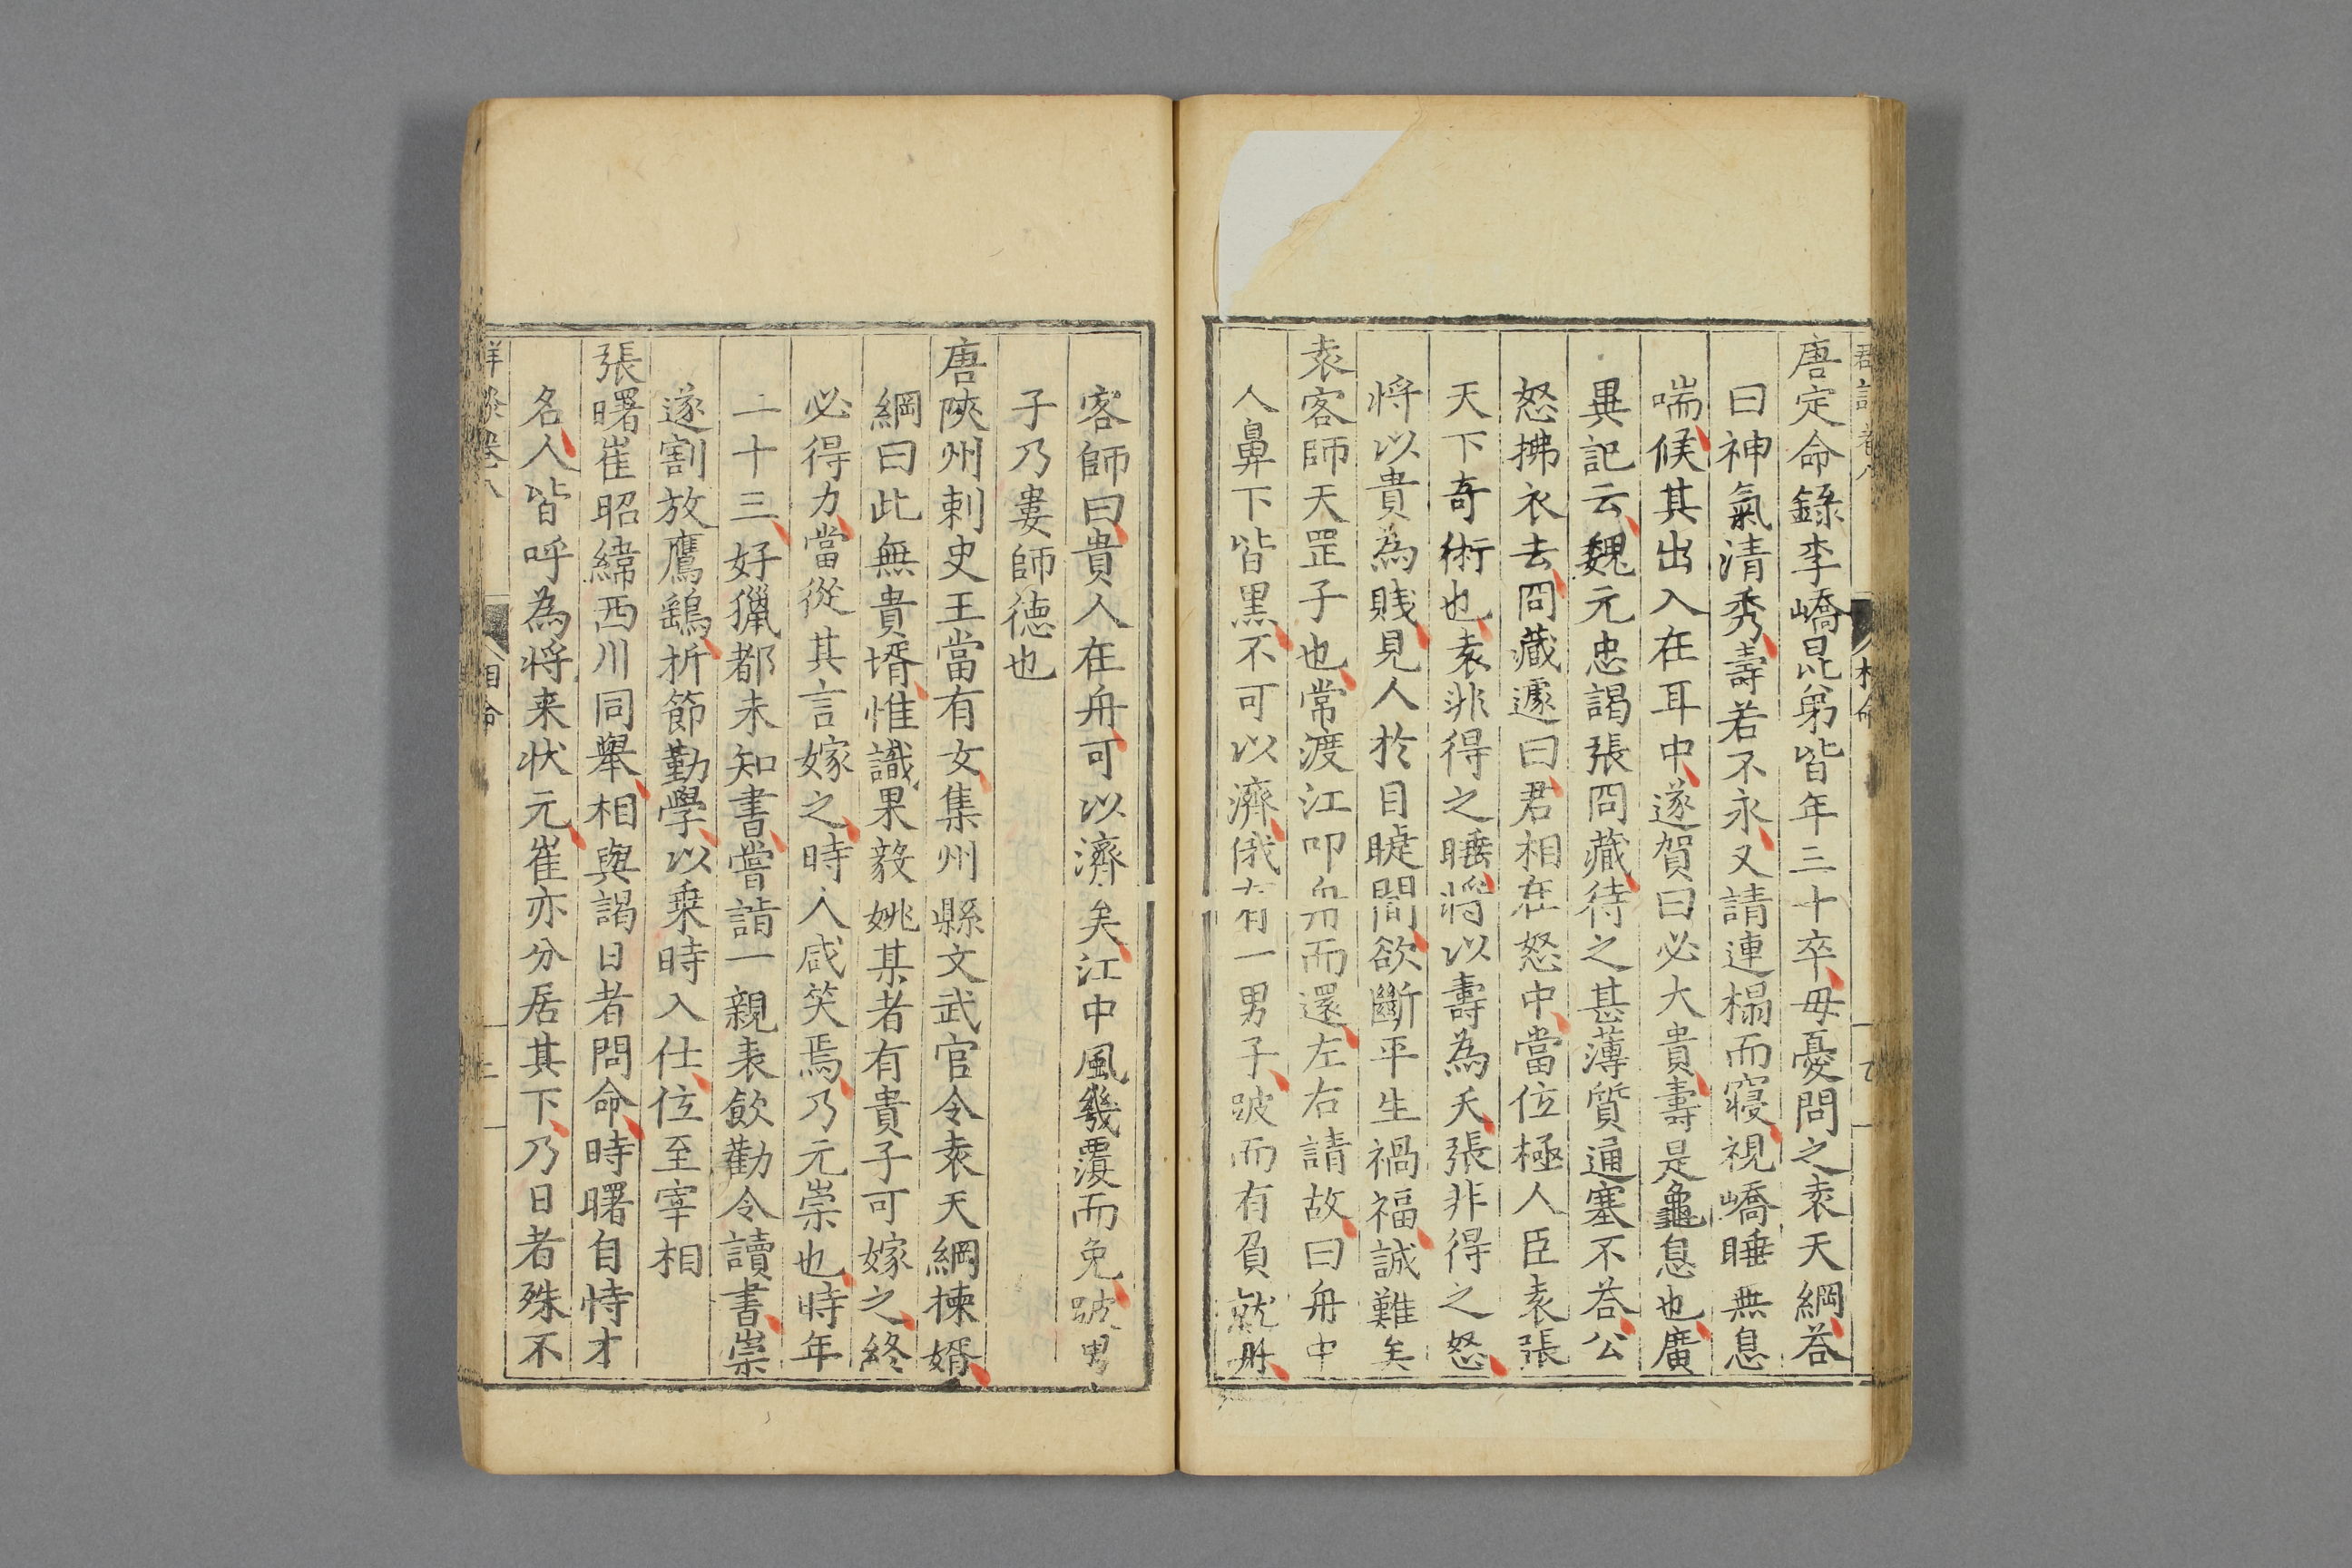 唐定命錄李嶠昆弟皆年三十卒母憂問之袁天綱荅
曰神氣清秀壽若不永又請連榻而寢視嶠睡無息
喘候其出入在耳中遂賀曰必大貴壽是龜息也廣
異記云魏元忠謁張冏藏待之甚薄質通塞不荅公
怒拂衣去冏藏遽曰君相在怒中當位極人臣袁張
天下奇術也袁非得之睡將以壽為夭張非得之怒
将以貴為賤見人於目睫間欲斷平生禍福誠難矣
袁客師天罡子也常渡江叩舟而還左右請故曰舟中
人鼻下皆黑不可以濟俄有一男子跛而有負就舟
客師曰貴人在舟可以濟矣江中風幾覆而免跛男
子乃婁師德也
唐陝州刺史王當有女集州縣文武官令袁天綱揀婿
綱曰此無貴壻惟識果毅姚某者有貴子可嫁之終
必得力當從其言嫁之時人咸笑焉乃元崇也時年
二十三好獵都未知書嘗詣一親表飲勸令讀書崇
遂割放鷹鷂折節勤學以乗時入仕位至宰相
張曙崔昭緯西川同舉相與謁日者問命時曙自恃才
名人皆呼為将来状元崔亦分居其下乃日者殊不